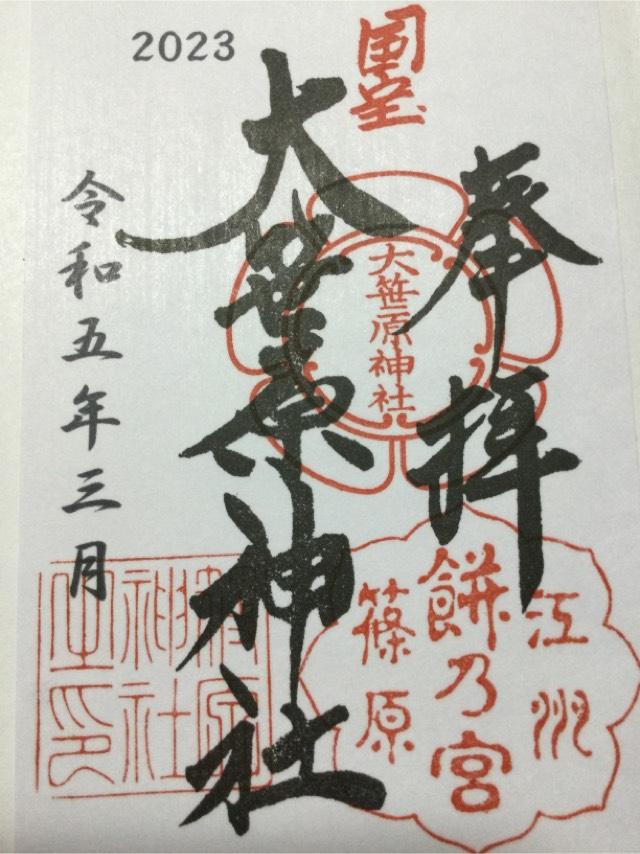 2023
国宝
奉拝
大笹原神社
大笹原神社
令和五年三月
江州
餅乃宮
篠原
神社
印